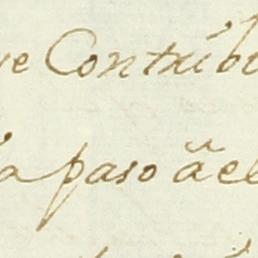 ve Contribu
a paso â el